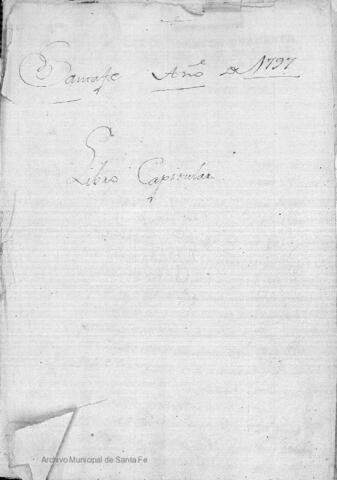 Santafe Año de 1797
Libro Capitular
Archivo Municipal de Santa Fe